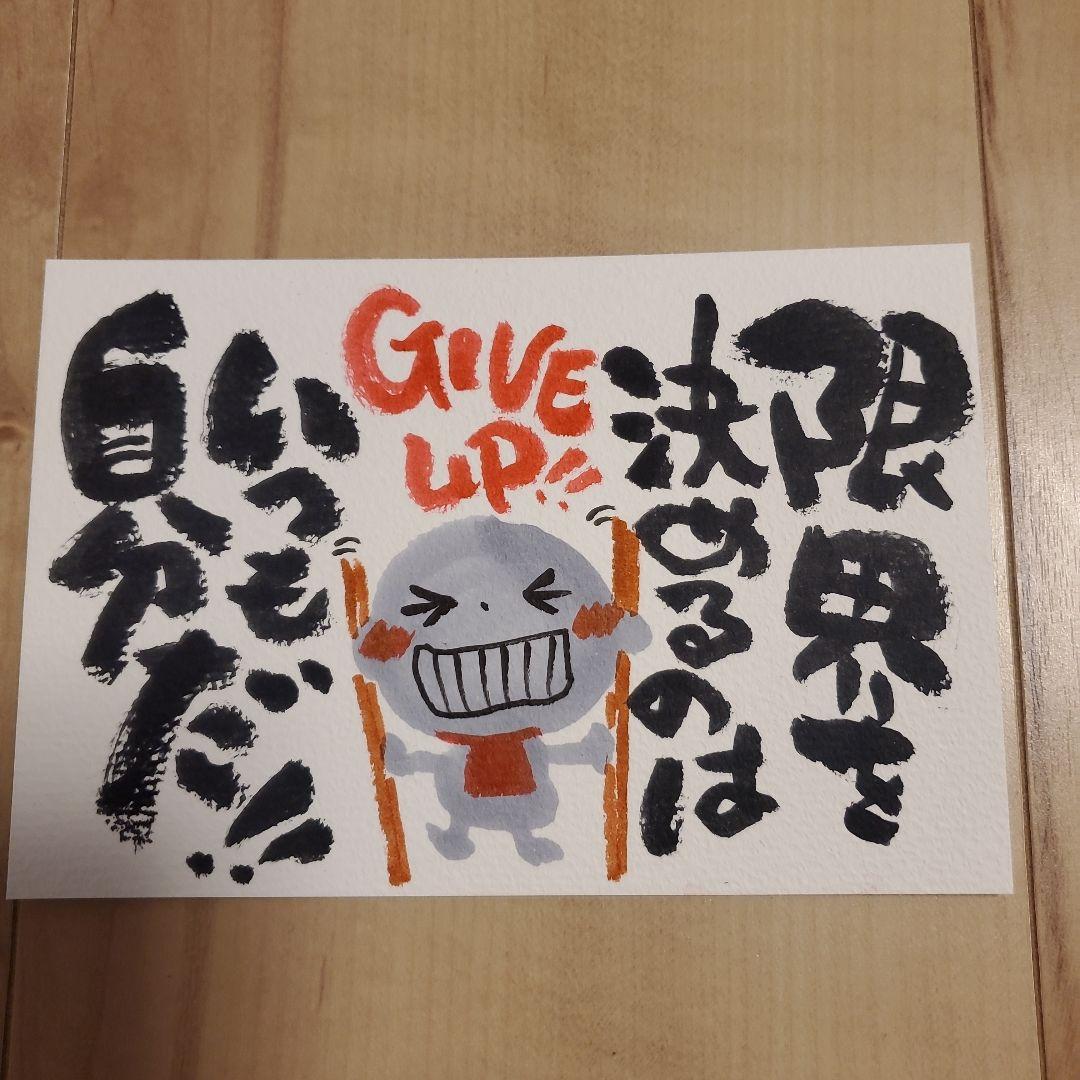 限界を
決めるのは
GIVE
UP!!
いつも
自分だだ!!